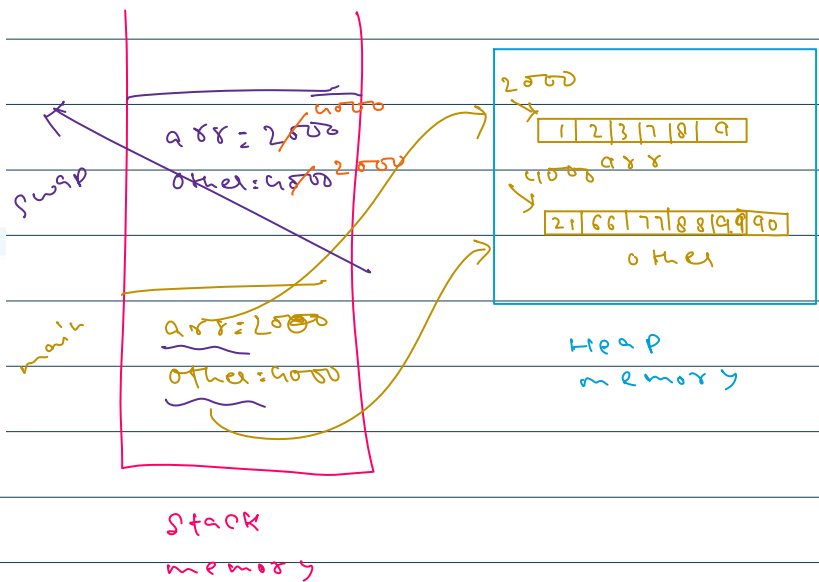 swap
arr = 2000 4000
other = 4000 2000
main
arr = 2000
other = 4000
stack
memory
2000
1 2 3 7 8 9
arr
4000
21 66 77 88 99 90
other
Heap
memory